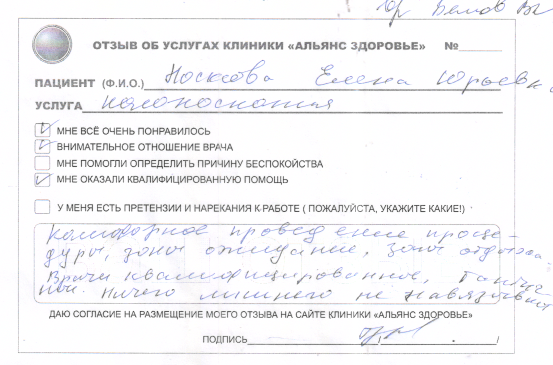 Др Белов Вл
ОТЗЫВ ОБ УСЛУГАХ КЛИНИКИ «АЛЬЯНС ЗДОРОВЬЕ» №
ПАЦИЕНТ (Ф.И.О.) Носкова Елена Юрьевн
УСЛУГА Колоноскопия
МНЕ ВСЁ ОЧЕНЬ ПОНРАВИЛОСЬ
ВНИМАТЕЛЬНОЕ ОТНОШЕНИЕ ВРАЧА
МНЕ ПОМОГЛИ ОПРЕДЕЛИТЬ ПРИЧИНУ БЕСПОКОЙСТВА
МНЕ ОКАЗАЛИ КВАЛИФИЦИРОВАННУЮ ПОМОЩЬ
У МЕНЯ ЕСТЬ ПРЕТЕНЗИИ И НАРЕКАНИЯ К РАБОТЕ ( ПОЖАЛУЙСТА, УКАЖИТЕ КАКИЕ!)
Комфорное проведение проце-
дуры, зоны ожидание, зоны отдыха.
Врачи квалифицированное, Тактич
ные. Ничего лишнего не навязывают
ДАЮ СОГЛАСИЕ НА РАЗМЕЩЕНИЕ МОЕГО ОТЗЫВА НА САЙТЕ КЛИНИКИ «АЛЬЯНС ЗДОРОВЬЕ»
ПОДПИСЬ / . /